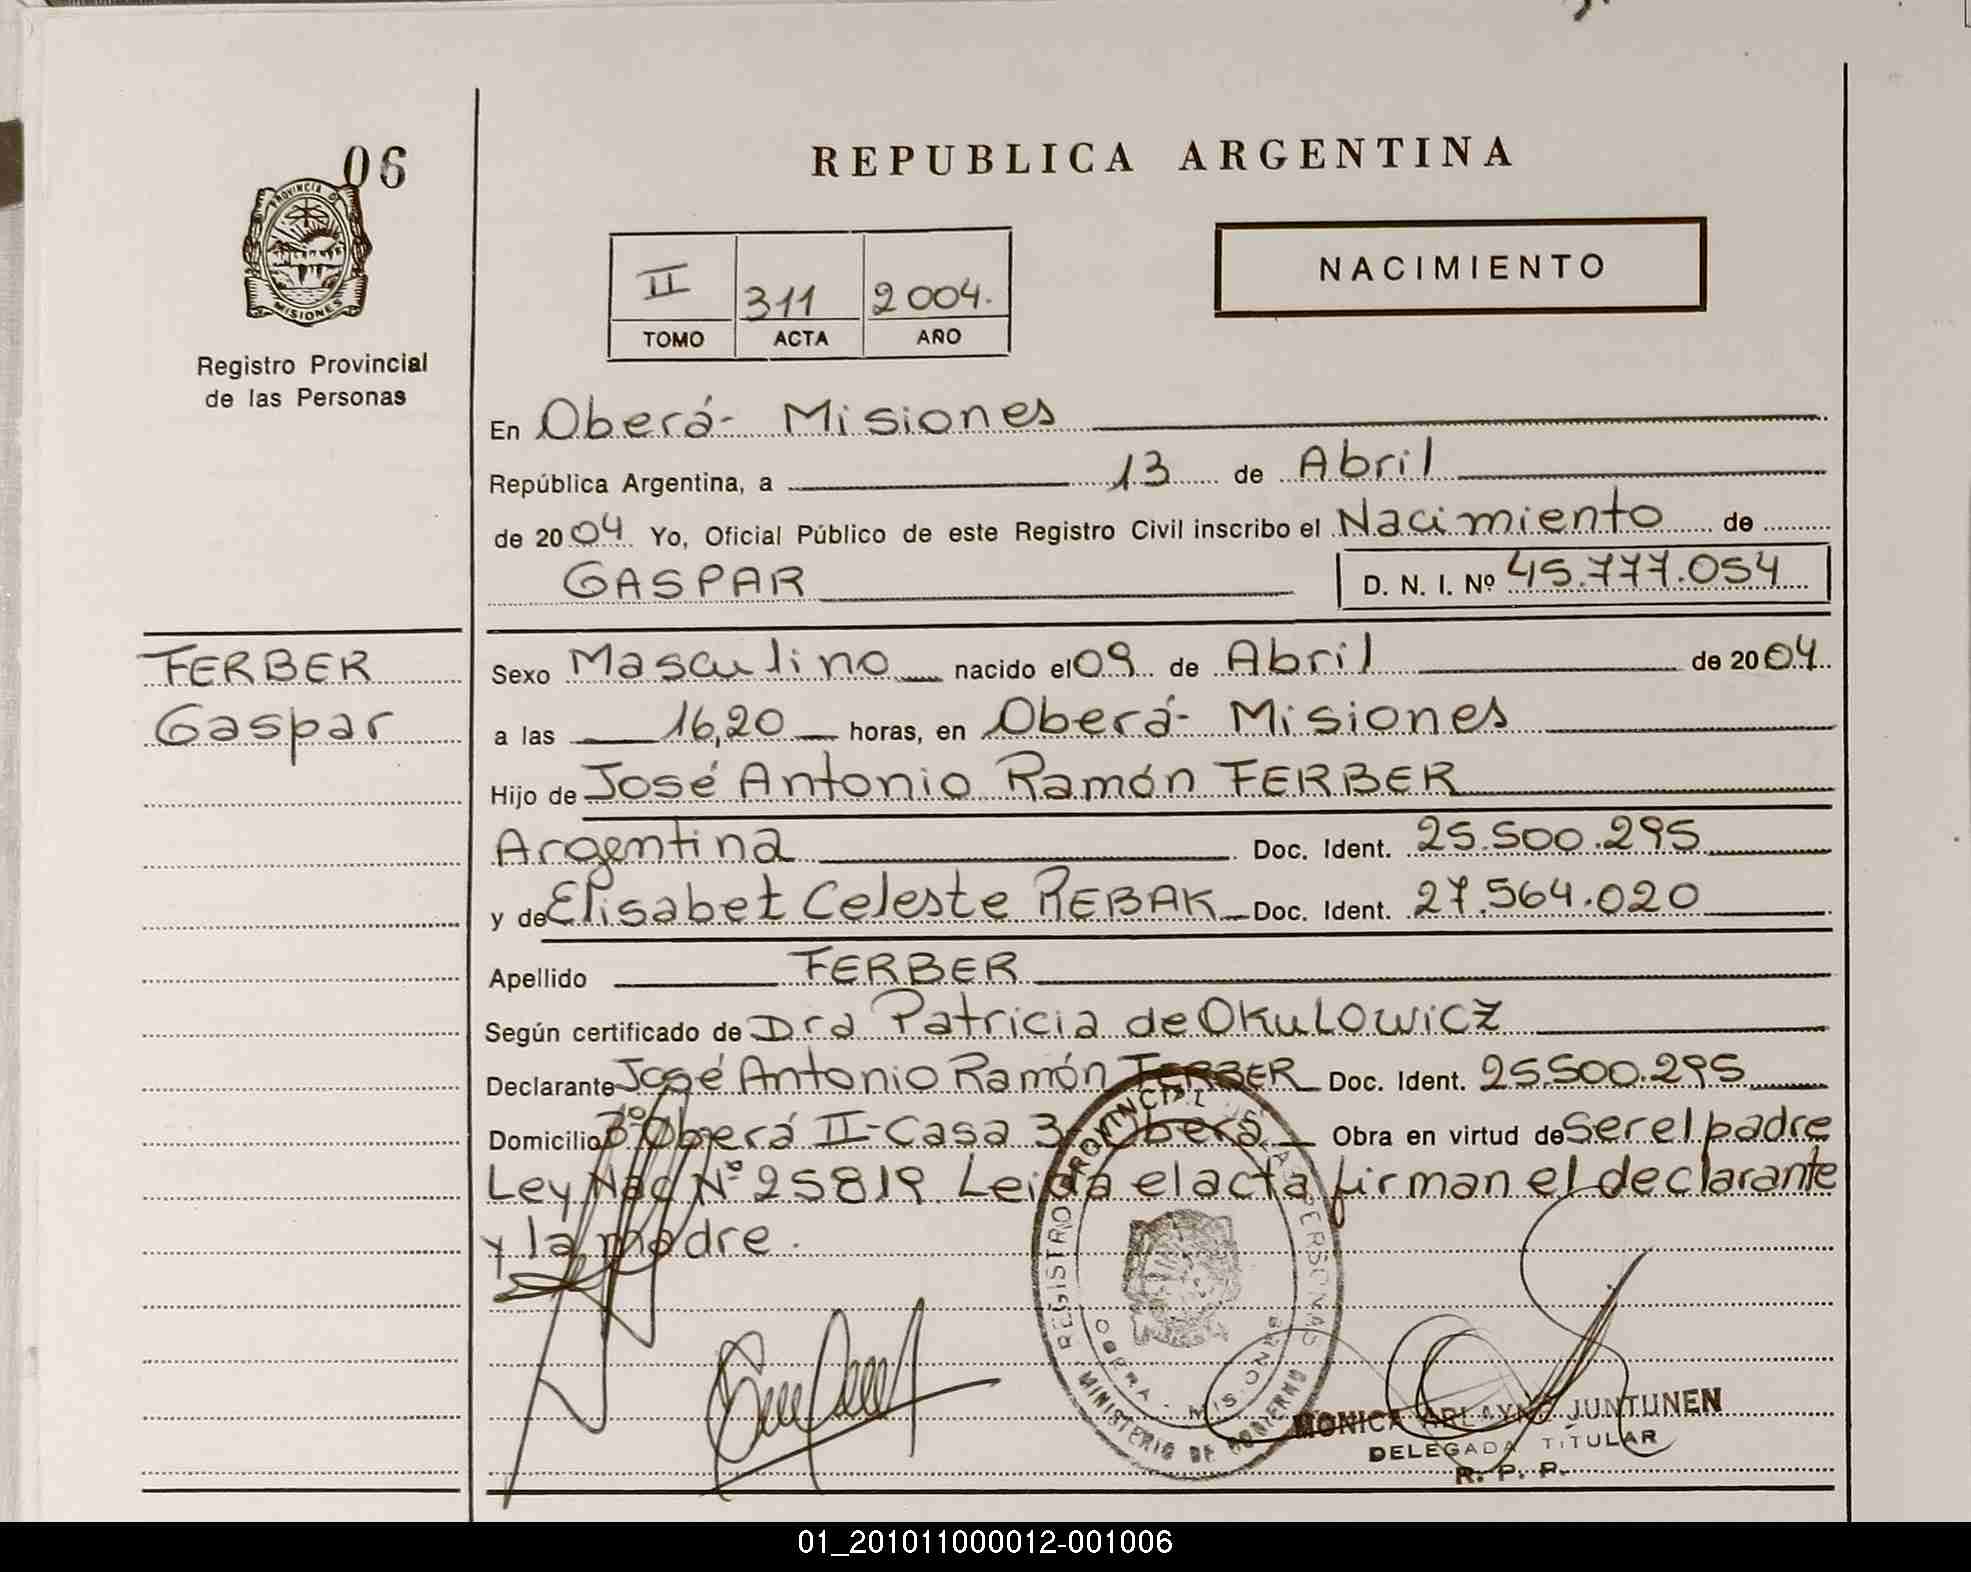 06
PROVINCIA DE
MISIONES
Registro Provincial
de las Personas
FERBER
Gaspar
REPUBLICA ARGENTINA
II 311 2004.
TOMO ACTA AÑO
NACIMIENTO
En Oberá- Misiones
República Argentina, a 13 de Abril
de 2004 Yo, Oficial Público de este Registro Civil inscribo el Nacimiento de
GASPAR D. N. I. Nº 45.777.054
Sexo Masculino nacido el 09 de Abril de 2004.
a las 16,20 horas, en Oberá- Misiones
Hijo de José Antonio Ramón FERBER
Argentina Doc. Ident. 25.500.295
y de Elisabet Celeste REBAK Doc. Ident. 27.564.020
Apellido FERBER
Según certificado de Dra Patricia de OKULOWICZ
Declarante José Antonio Ramón FERBER Doc. Ident. 25.500.295
Domicilio Bº Oberá II-Casa 3 Oberá Obra en virtud de Ser el padre
Ley Nac Nº 25819 Leida el acta firman el declarante
y la madre.
REGISTRO PROVINCIAL DE LAS PERSONAS
OBERA - MISIONES
MINISTERIO DE GOBIERNO
MONICA ARLAYNE JUNTUNEN
DELEGADA TITULAR
R. P. P.
01_201011000012-001006